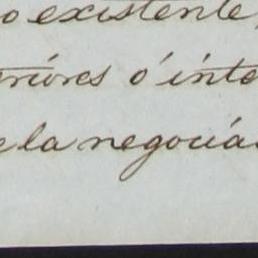 o existente,
eriores ó inte
e la negociá